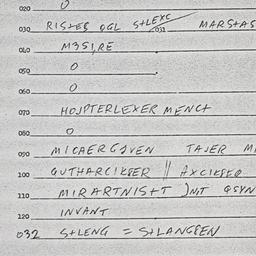 020 O
030 RISTEB OGL STLEXC MARSTAS
031
040 M3SI,RE
050 O
060 O
070 HOJPTERLEXER MENCT
080 O
090 MICAERGIVEN TAJER
100 GUTHARCIKSER || AXCIKSEO
110 MIRARTNISTT JNIT QSYN
120 INVANT
032 STLENG = STLANGSEN